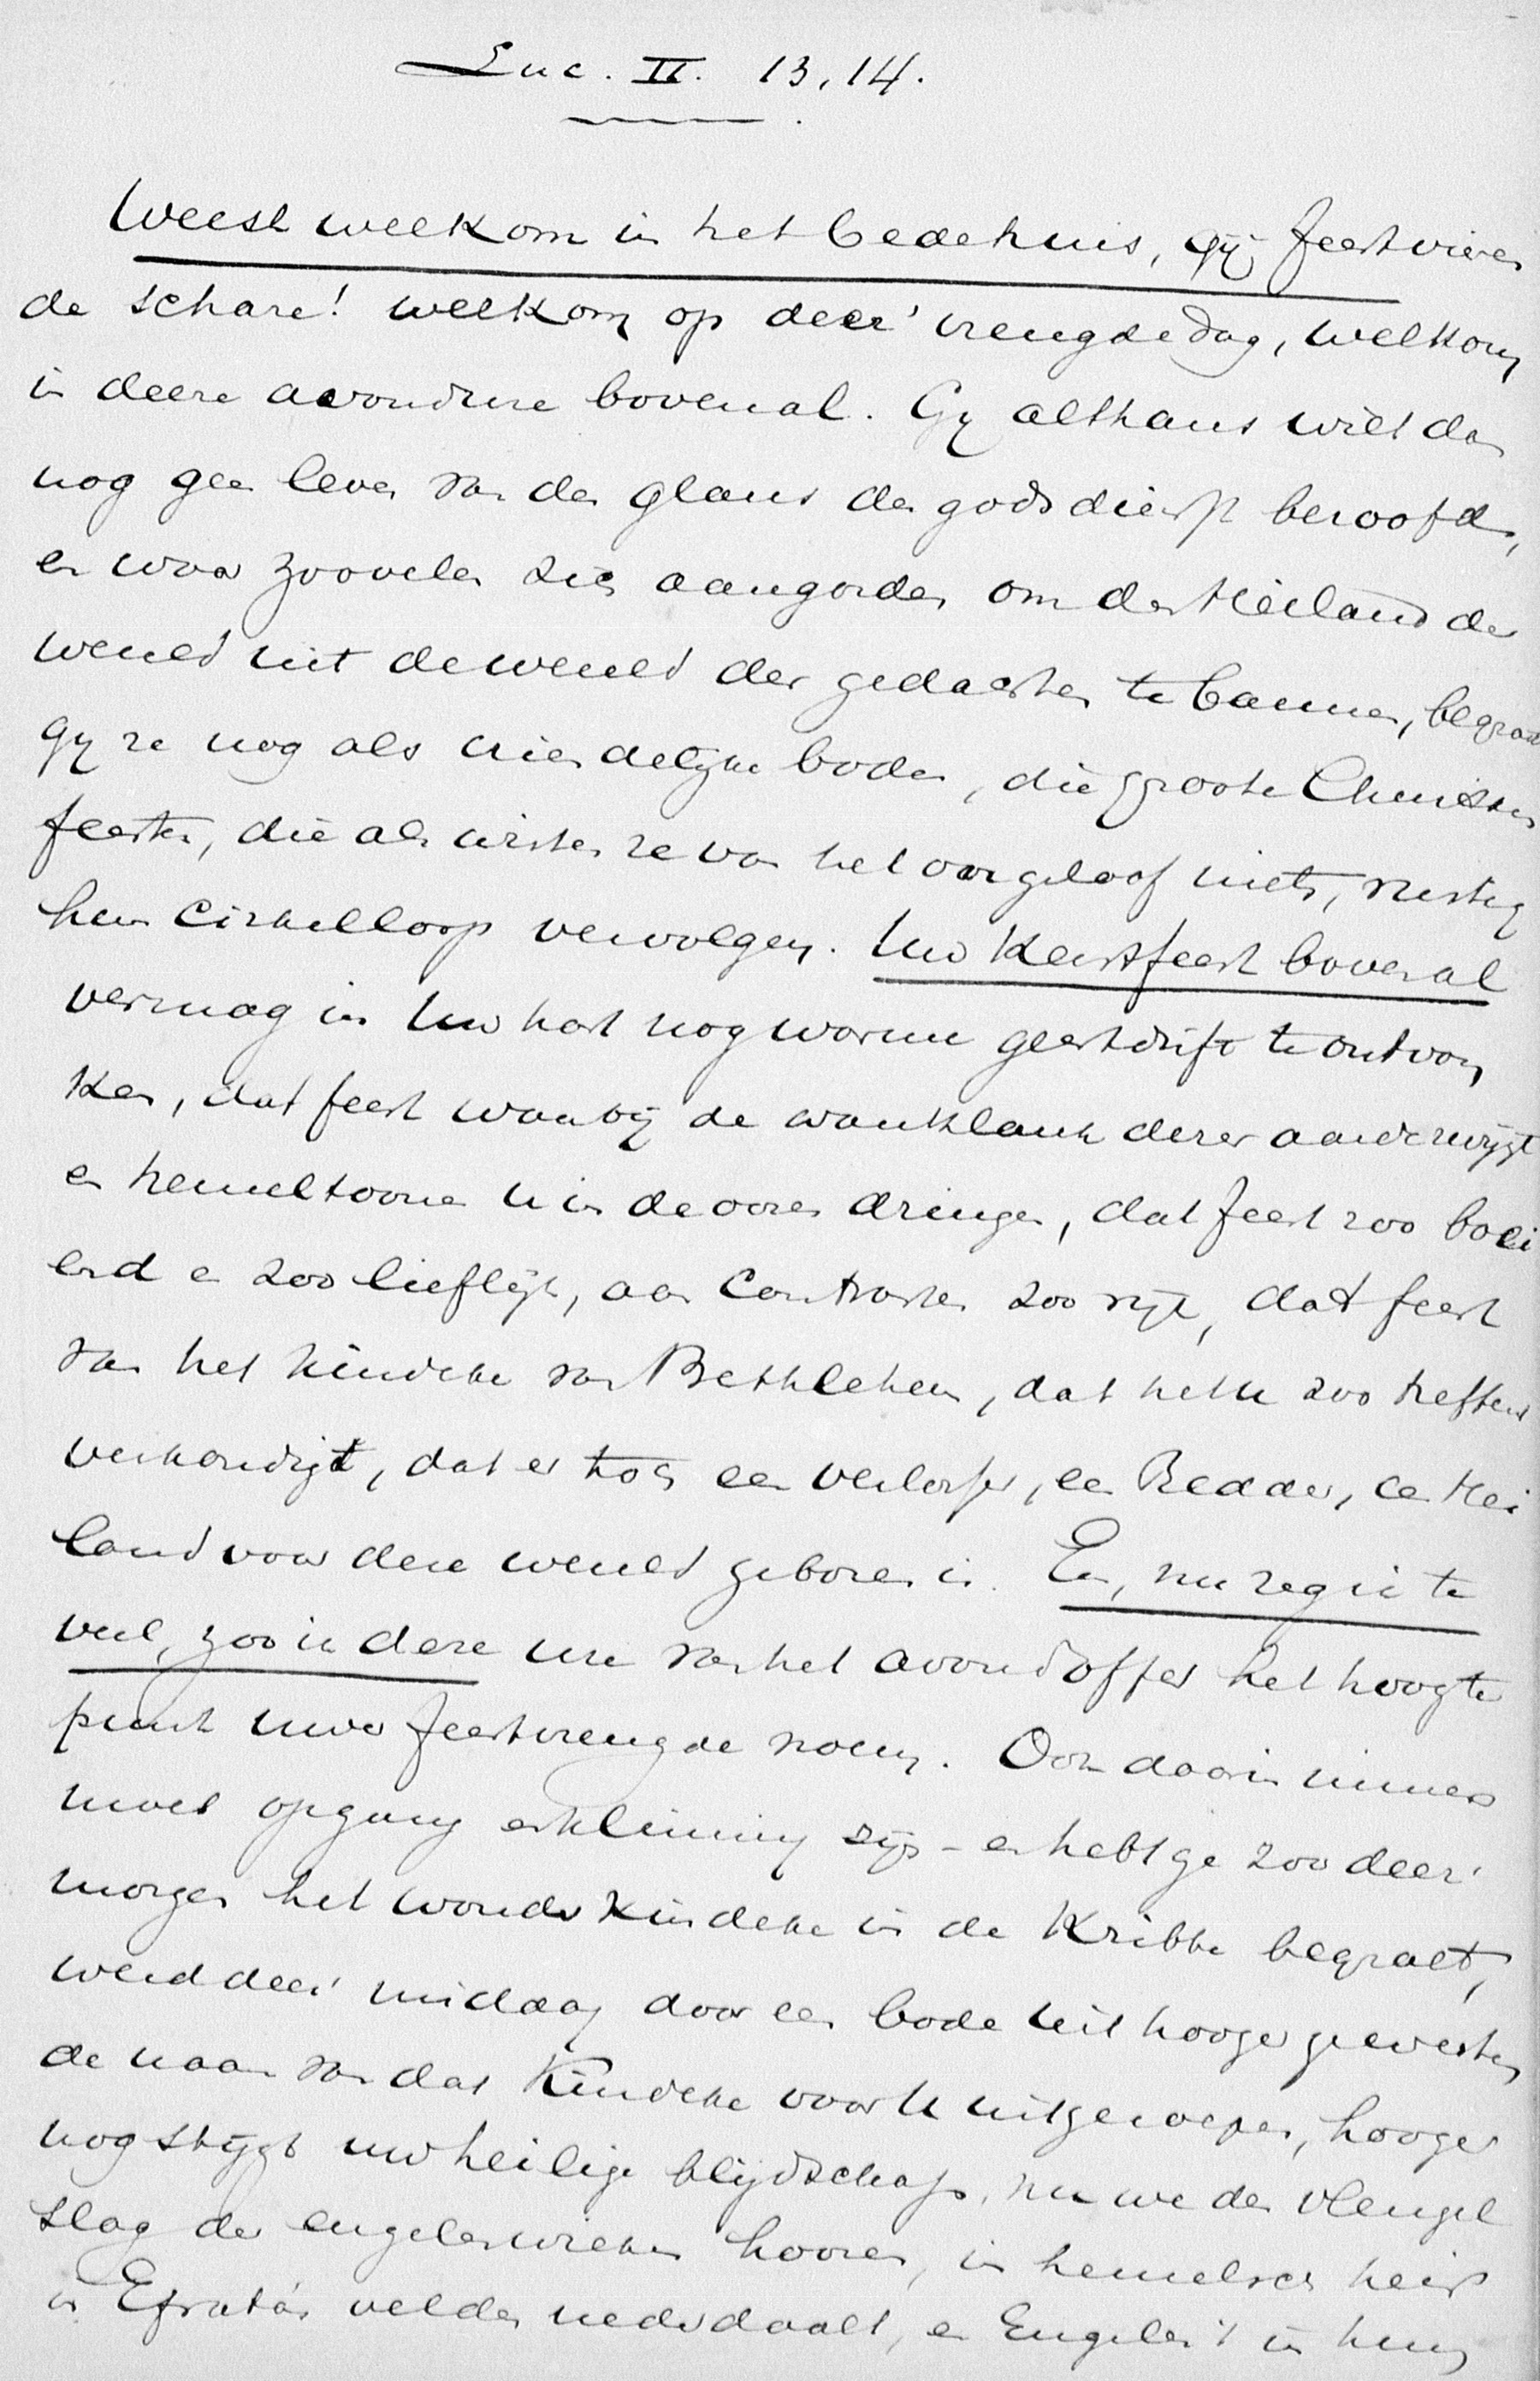 Luc. II. 13, 14.
Weest welkom in het bedehuis, gij feestvieren
de schare! welkom op deez' vreugdedag, welkom
in deeze avondure bovenal. Gy althans wilt den
nog geen leven van den glans der godsdienst beroofd,
en waar zoovelen zich aangorden om den Heiland der
wereld uit de wereld der gedachten te bannen, begroet
gy ze nog als vriendelijke boden, die groote Christen
feesten, die als wisten ze van het ongeloof niets, rustig
hun cirkelloop vervolgen. Uw Kerstfeest bovenal
vermag in Uw hart nog warme geestdrift te ontvon
ken, dat feest waarbij de wanklank dezer aarde zwijgt
en hemeltoonen U in de ooren dringen, dat feest zoo boei
end en zoo lieflijk, aan Contrasten zoo rijk, dat feest
van het kindeke van Bethlehem, dat het U zoo treffend
verkondigt, dat er toch een verlosser, een Redder, een Hei
land voor deze wereld geboren is. En, nu zeg ik te
veel, zoo ik deze ure van het avondoffer het hoogte
punt uwer feestvreugde noem. Ook daarin immers
moet opgang en klimming zijn – en hebt ge zoo deez'
morgen het wonderkindeke in de Kribbe begroet,
werd deez' middag door een bode uit hooger gewesten
de naam van dat Kindeke voor U uitgeroepen, hooger
nog stijgt uw heilige blijdschap, nu we den vleugel
slag der engelenwieken hooren, een hemelsch heir
in Efrata's velden nederdaalt, en Englen 't in hun